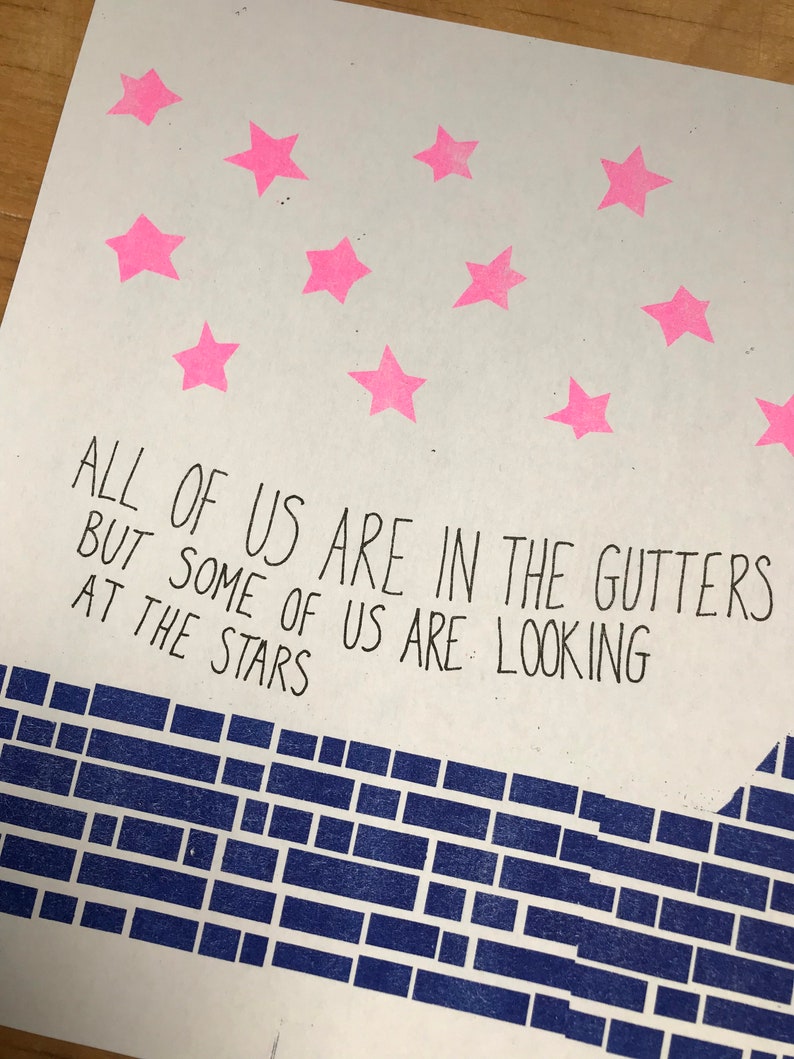 ALL OF US ARE IN THE GUTTERS
BUT SOME OF US ARE LOOKING
AT THE STARS